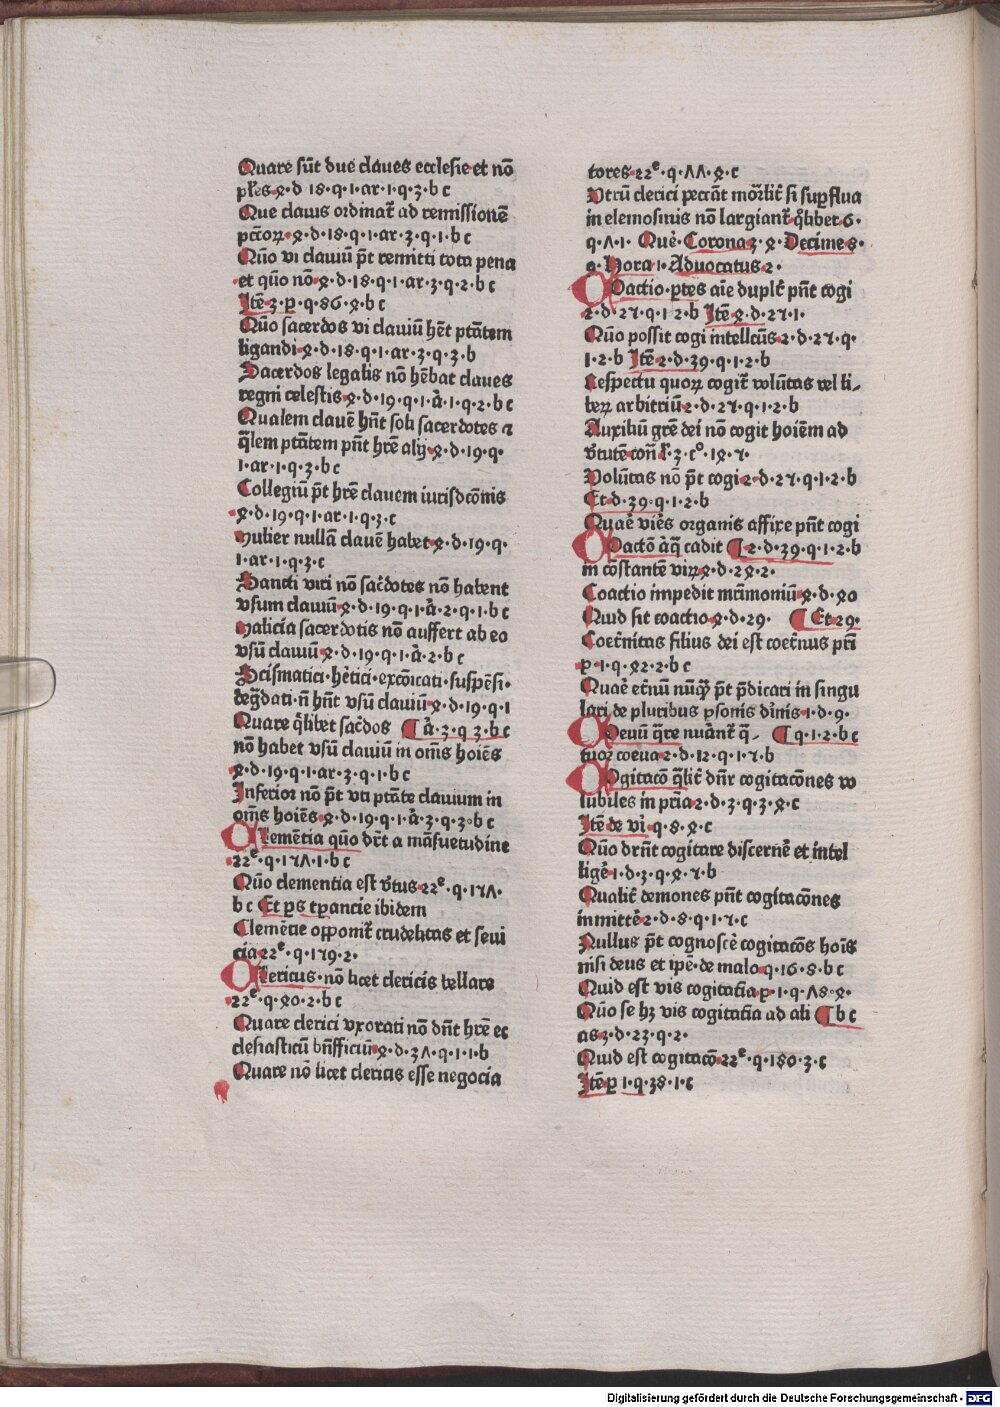 Quare sūt due claues ecclesie et nō
pl̄es ꝝ·d 18·q·1·ar·1·q·3·b c
Que clauis ordinat̄ ad remissionē
pctōꝝ·4·d·18·q·1·ar·3·q·1·b c
Quō vi clauiū pt̄ remitti tota pena
et quō nō·4·d·18·q·1·ar·3·q·2·b c
Itē 3·p·q·86·4·b c
Quō sacerdos vi clauiū hēt ptātem
ligandi·4·d·18·q·1·ar·3·q·3·b
Sacerdos legalis nō hēbat claues
regni celestis·4·d·19·q·1·a̅·1·q·2·b c
Qualem clauē hn̄t soli sacerdotes ⁊
q̄lem ptātem pn̄t hr̄e alij·4·d·19·q·
1·ar·1·q·3·b c
Collegiū pt̄ hr̄e clauem iurisdcōnis
·4·d·19·q·1·ar·1·q·3·c
Mulier nullā clauē habet·4·d·19·q·
1·ar·1·q·3·c
Sancti viri nō sac̄dotes nō habent
vsum clauiū·4·d·19·q·1·a̅·2·q·1·b c
Malicia sacerdotis nō auffert ab eo
vsū clauiū·4·d·19·q·1·a̅·2·b c
Scismatici·hētici·excōicati·suspēsi·
deḡdati·n̄ hn̄t vsū clauiū·4·d·19·q·1
Quare q̄libet sac̄dos ¶ a̅·3·q 3·b c
nō habet vsū clauiū in om̄s hoiēs
·4·d·19·q·1·ar·3·q·1·b c
Inferior nō pt̄ vti ptāte clauium in
om̄s hoiēs·4·d·19·q·1·a̅·3·q·3·b c
Clemētia quō dr̄t a māsuetudine
22ᵉ·q·157·1·b c
Quō clementia est v̄tus·22ᵉ·q·157·
b c Et p̄s tp̄ancie ibidem
Clemētie oppōnit̄ crudelitas et seui
cia·22ᵉ·q·159·2·
Clericus·nō licet clericis bellare
·22ᵉ·q·40·2·b c
Quare clerici vxorati nō dn̄t hr̄e ec
clesiasticū bn̄fficiū·4·d·37·q·1·1·b
Quare nō licet clericis esse negocia
tores·22ᵉ·q·77·4·c
Vtrū clerici peccāt mōrlit̄ si supflua
in elemosinis nō largiant̄·q̄libet·6·
q·7·1· Quē·Corona·3·4·Decime·8·
⁊·Hora·1·Aduocatus·2·
Coactio·ptes aīe duplr̄ pn̄t cogi
2·d·25·q·1·2·b Itē·4·d·25·1·
Quō possit cogi intellcūs·2·d·25·q·
1·2·b Itē·2·d·39·q·1·2·b
Respectu quoꝝ cogit̄ volūtas vel li-
beꝝ arbitriū·2·d·25·q·1·2·b
Auxiliū grē dei nō cogit hoiēm ad
v̄tutē·3·c°·14·5·
Volūtas nō pt̄ cogi·2·d·25·q·1·2·b
Et·d·39·q·1·2·b
Quaē viēs organis affixe pn̄t cogi
Coactō cadit ¶·2·d·39·q·1·2·b
in cōstantē viꝝ·4·d·29·2·
Coactio impedit mr̄imoniū·4·d·40
Quid sit coactio·4·d·29· ¶ Et·29·
Coet̄nitas filius dei est coet̄nus pr̄i
p·1·q·42·2·b c
Quaē et̄nū nūq̄ pt̄ p̄dicari in singu
lari de pluribus psonis diīnis·1·d·9·
Coeuū q̄re nūant̄ q̄- ¶ q·1·2·b c
tuoꝝ coeua·2·d·12·q·1·5·b
Cogitacō q̄lit̄ dn̄r cogitacōnes vo
lubiles in pr̄ia·2·d·3·q·3·4·c
Itē de vi·q·8·4·c
Quō drn̄t cogitare discernē et intel
ligē·1·d·3·q·4·5·b
Qualit̄ demones pn̄t cogitacōnes
inmittē·2·d·8·q·1·5·c
Nullus pt̄ cognoscē cogitacōs hoīs
nisi deus et ipē·de malo·q·16·8·b c
Quid est vis cogitatīa·p·1·q·78·4·
Quō se hꝫ vis cogitatīa ad ali ¶ b c
as·3·d·23·q·2·
Quid est cogitacō·22ᵉ·q·180·3·c
Itē·p 1·q·34·1·c
Digitalisierung gefördert durch die Deutsche Forschungsgemeinschaft - DFG